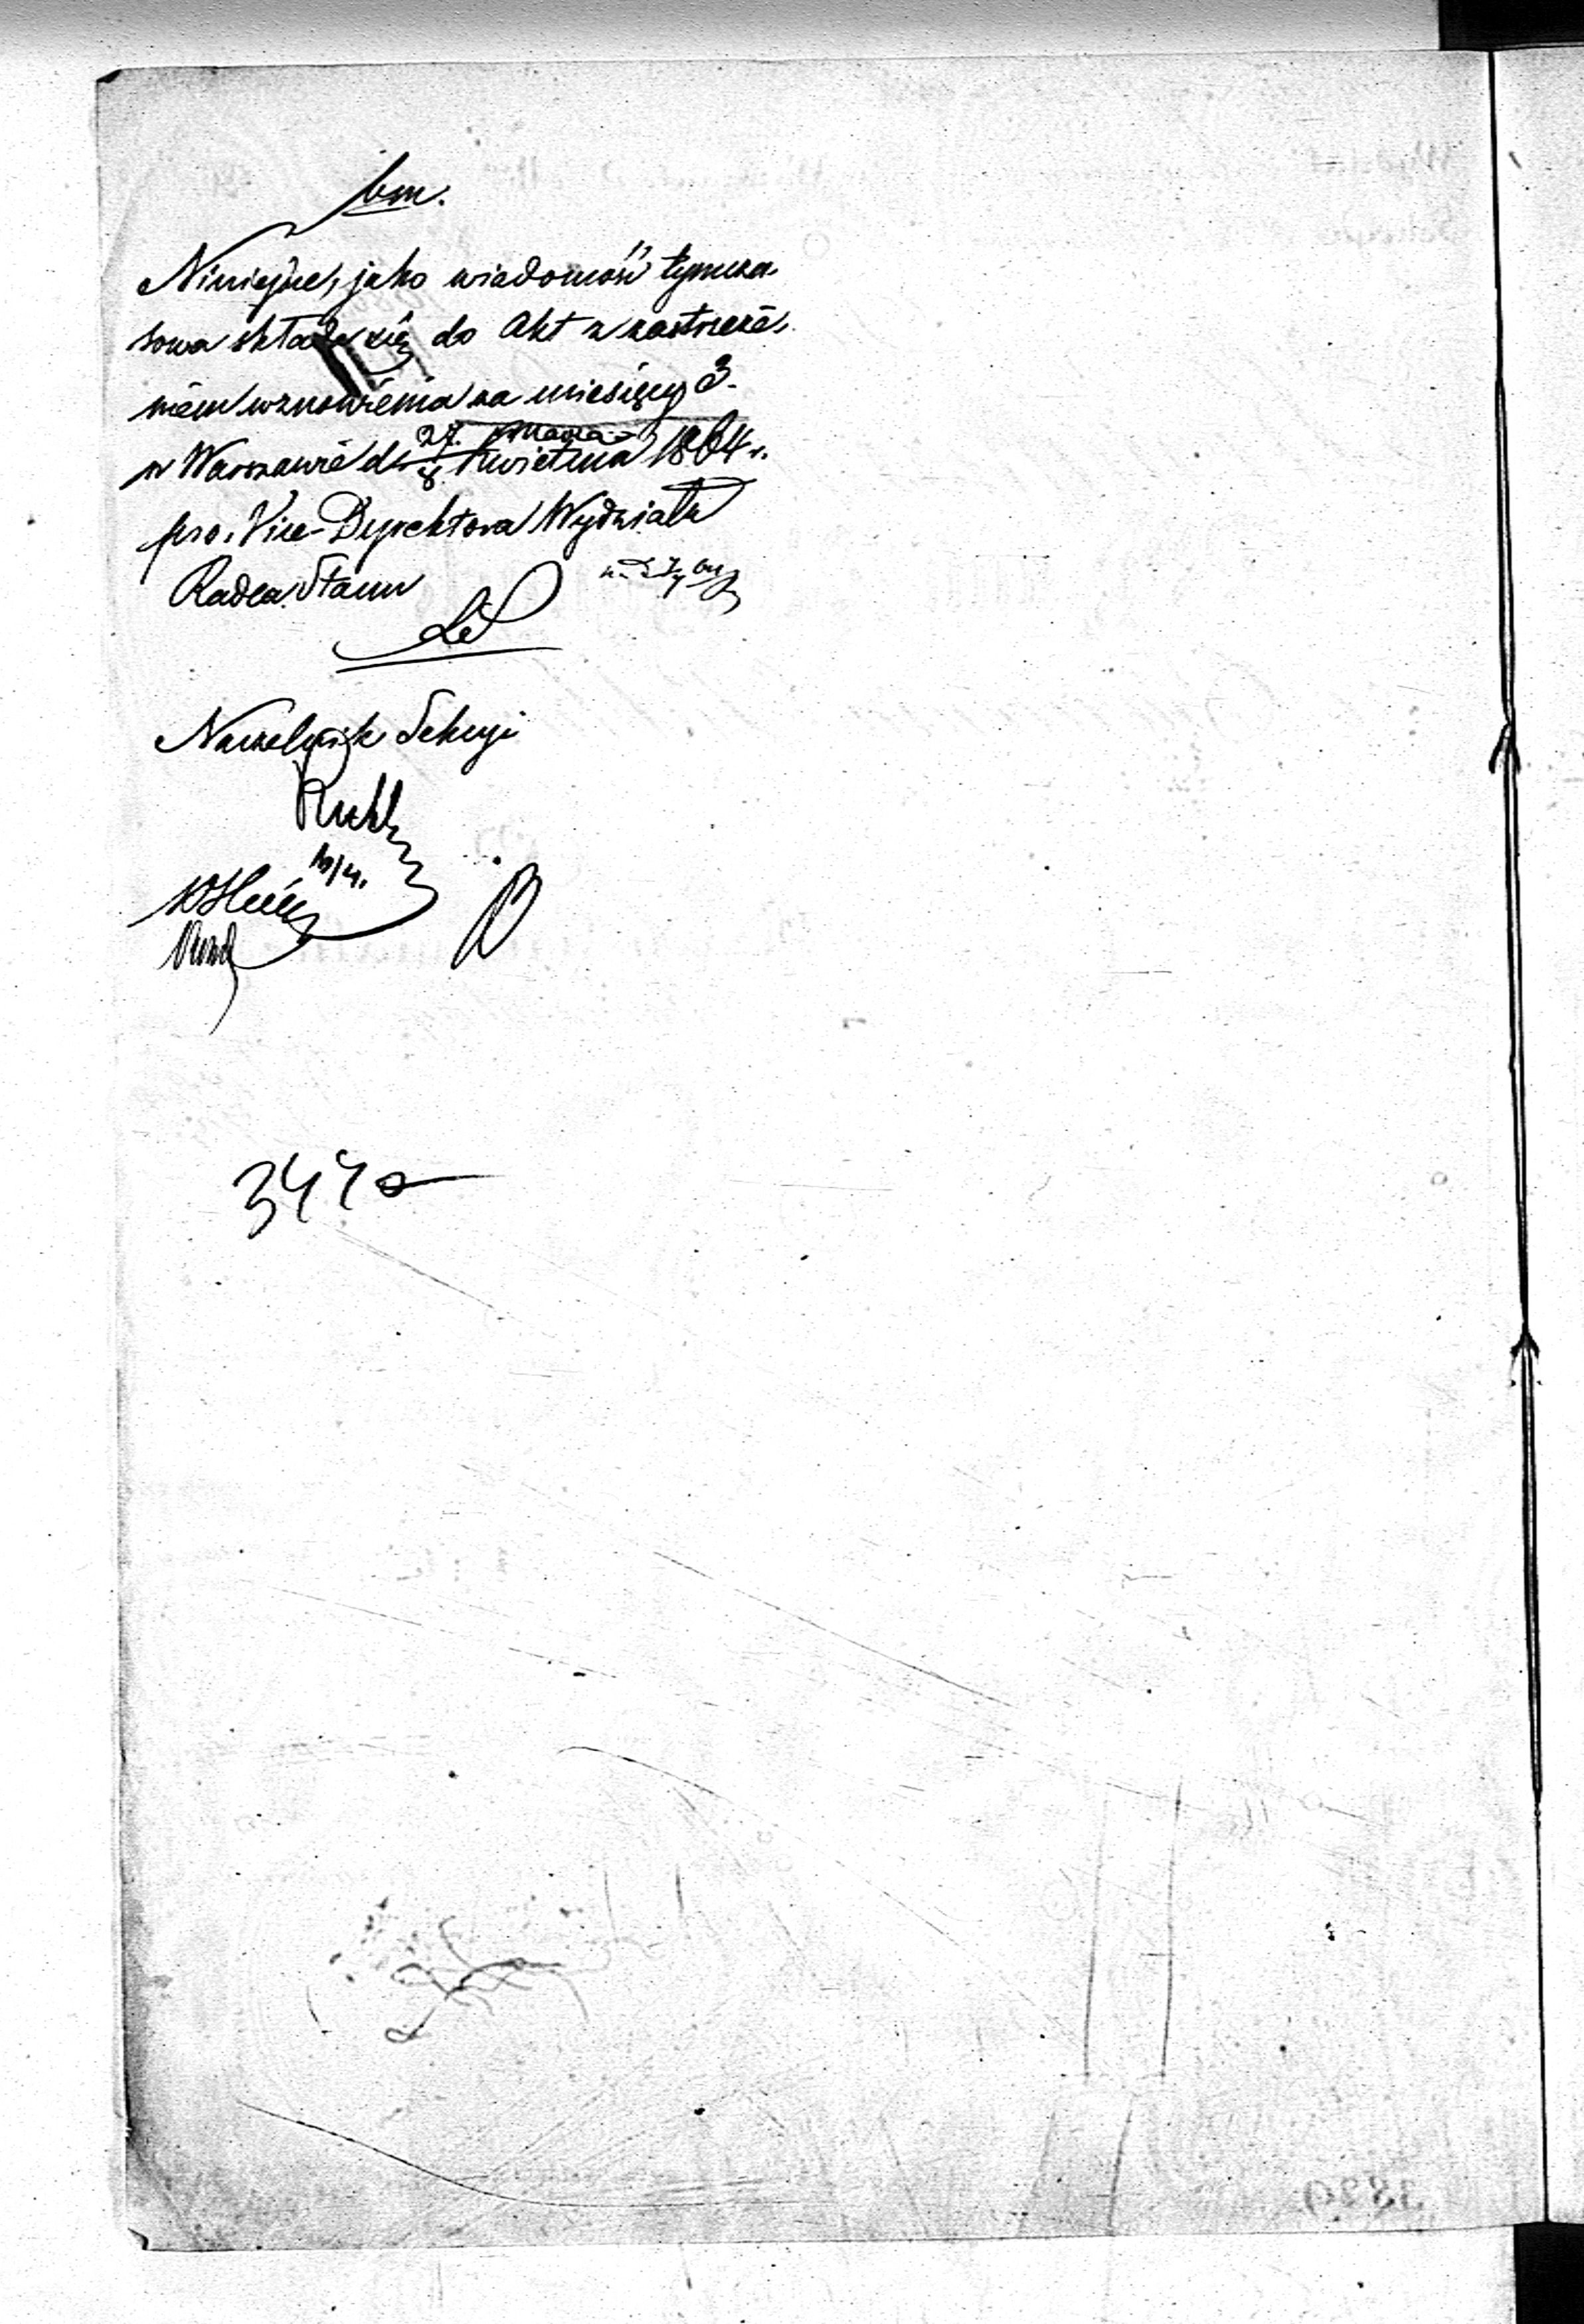 bm.
Niniejsze, jako wiadomość tymcza-
sowa składa się do Akt z zastrzeże-
niem wznowienia za miesięcy 3.
w Warszawie d. 27. Marca
8. Kwietnia 1864 r.
pro. Vice-Dyrektora Wydziału
Radca Stanu
Naczelnik Sekcyi
Ruhl
10/4.
344